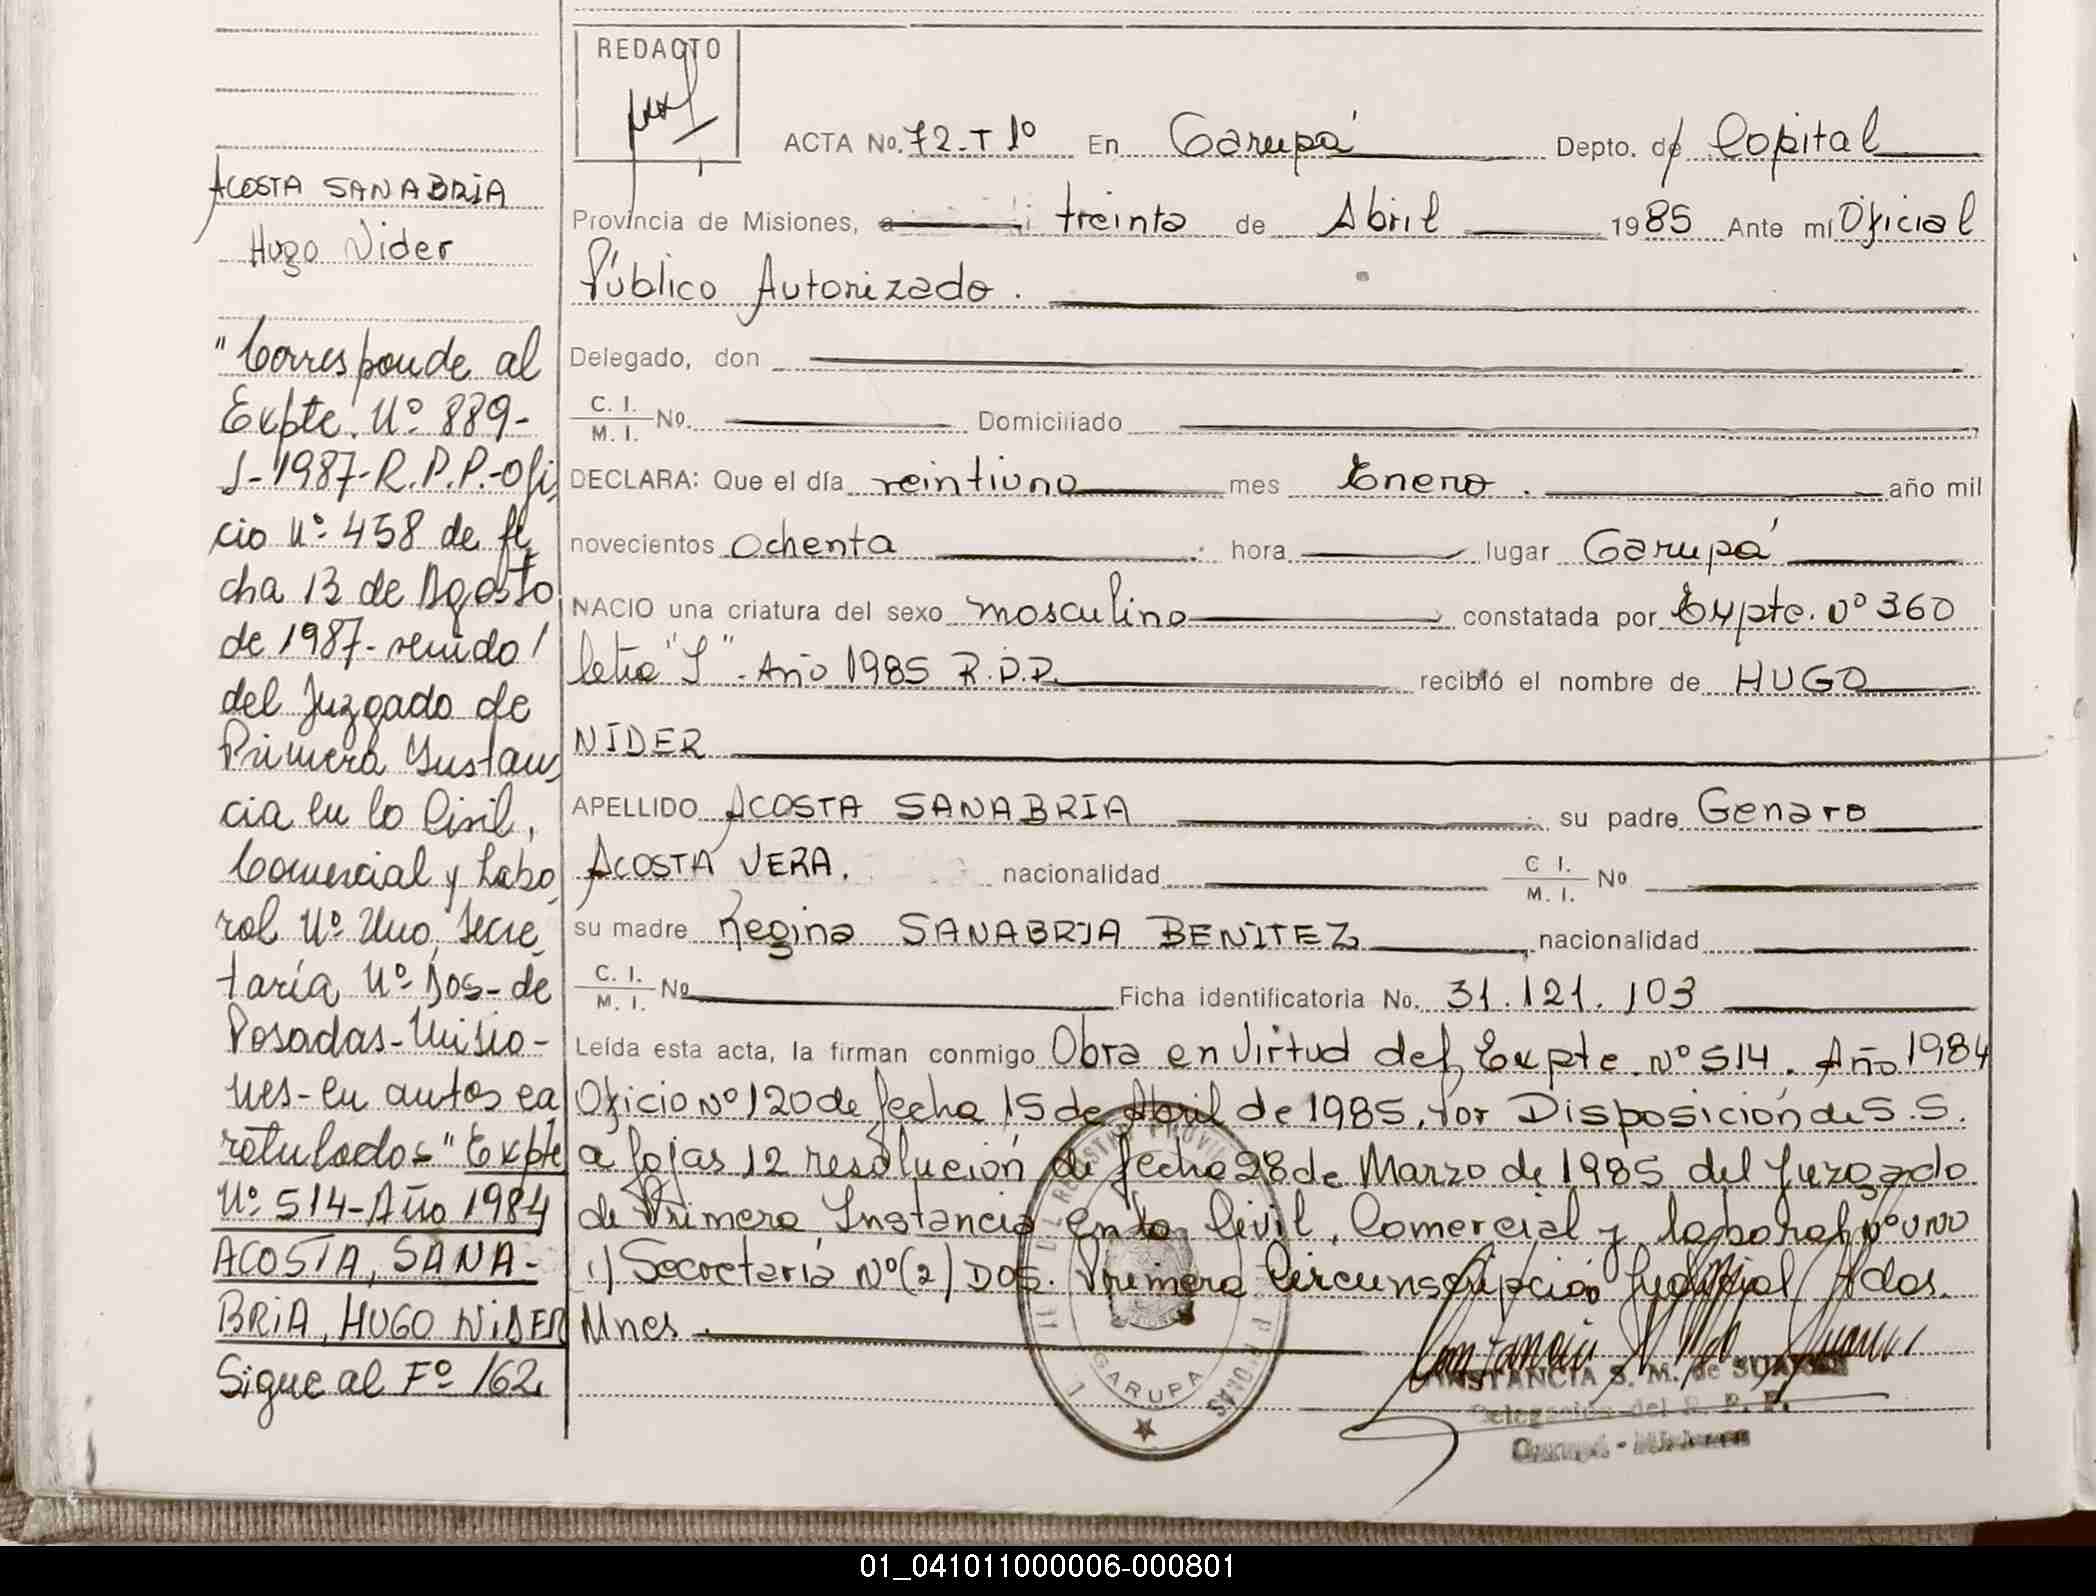 ACOSTA SANABRIA
Hugo Nider
"Corresponde al
Expte. Nº 889-
S-1987-R.P.P.-Ofi,
cio Nº 458 de fe,
cha 13 de Agosto
de 1987- venido/
del Juzgado de
Primera Instan,
cia en lo Civil,
Comercial y Labo
ral Nº Uno, Secre,
taría Nº Dos-de
Posadas-Misio-
nes-en autos ca
ratulados "Expte
Nº 514-Año 1984
ACOSTA, SANA-
BRIA, HUGO NIDER
Sigue al Fº 162.
REDACTO
ACTA No. 72-T 1º En Garupá Depto. de Capital
Provincia de Misiones, a treinta de Abril 1985 Ante mí Oficial
Público Autorizado.
Delegado, don
C. I.
M. I. No. Domiciliado
DECLARA: Que el día veintiuno mes Enero. año mil
novecientos Ochenta hora lugar Garupá
NACIO una criatura del sexo masculino constatada por Expte. Nº 360
letra "S". Año 1985 R.P.P. recibió el nombre de HUGO
NIDER
APELLIDO ACOSTA SANABRIA su padre Genaro
ACOSTA VERA. nacionalidad C I. M. I. No
su madre Regina SANABRIA BENITEZ, nacionalidad
C. I. M. I. No Ficha identificatoria No. 31.121.103
Leída esta acta, la firman conmigo Obra en Virtud del Expte. Nº 514. Año 1984
Oficio Nº 120 de fecha 15 de Abril de 1985, Por Disposición de S.S.
a fojas 12 resolución de fecha 28 de Marzo de 1985 del Juzgado
de Primera Instancia en lo Civil, Comercial y laboral Nº UNO
1) Secretaría Nº (2) DOS. Primera Circunscripción Judicial Pdas.
Mnes.
GARUPA
INSTANCIA S. M. de
Delegación del R. P. P.
01_041011000006-000801